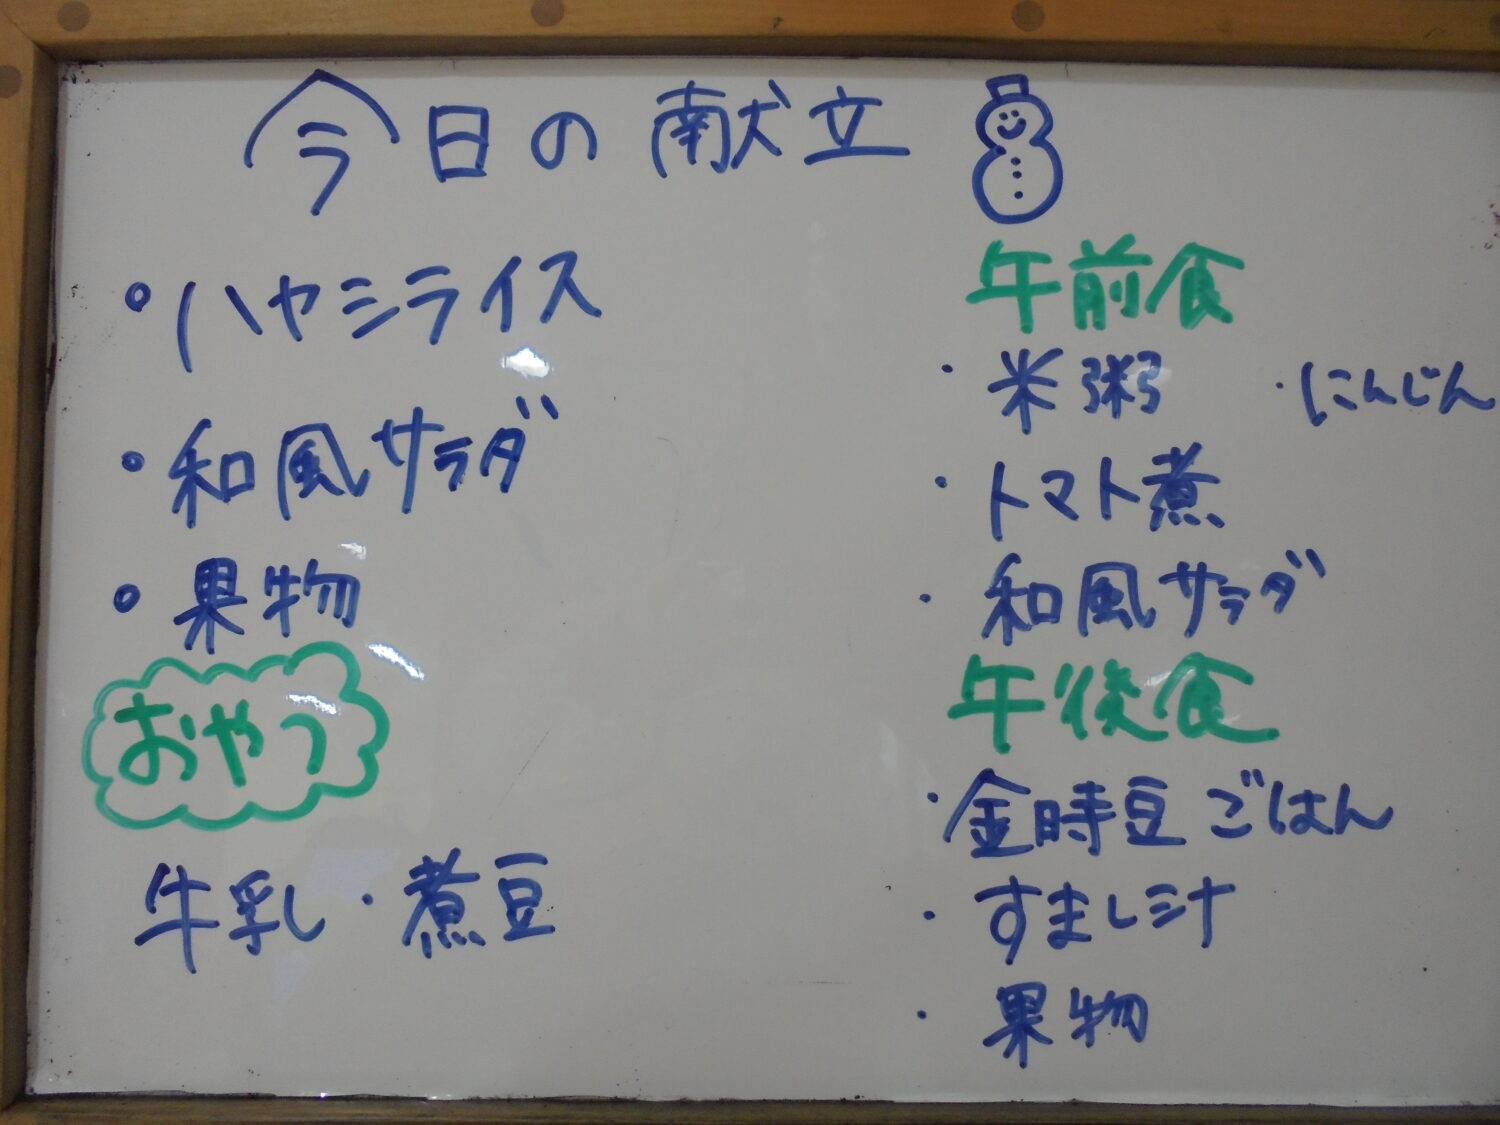 今日の献立
・ハヤシライス
・和風サラダ
・果物
おやつ
牛乳・煮豆
午前食
・米粥 ・にんじん
・トマト煮
・和風サラダ
午後食
・金時豆ごはん
・すまし汁
・果物